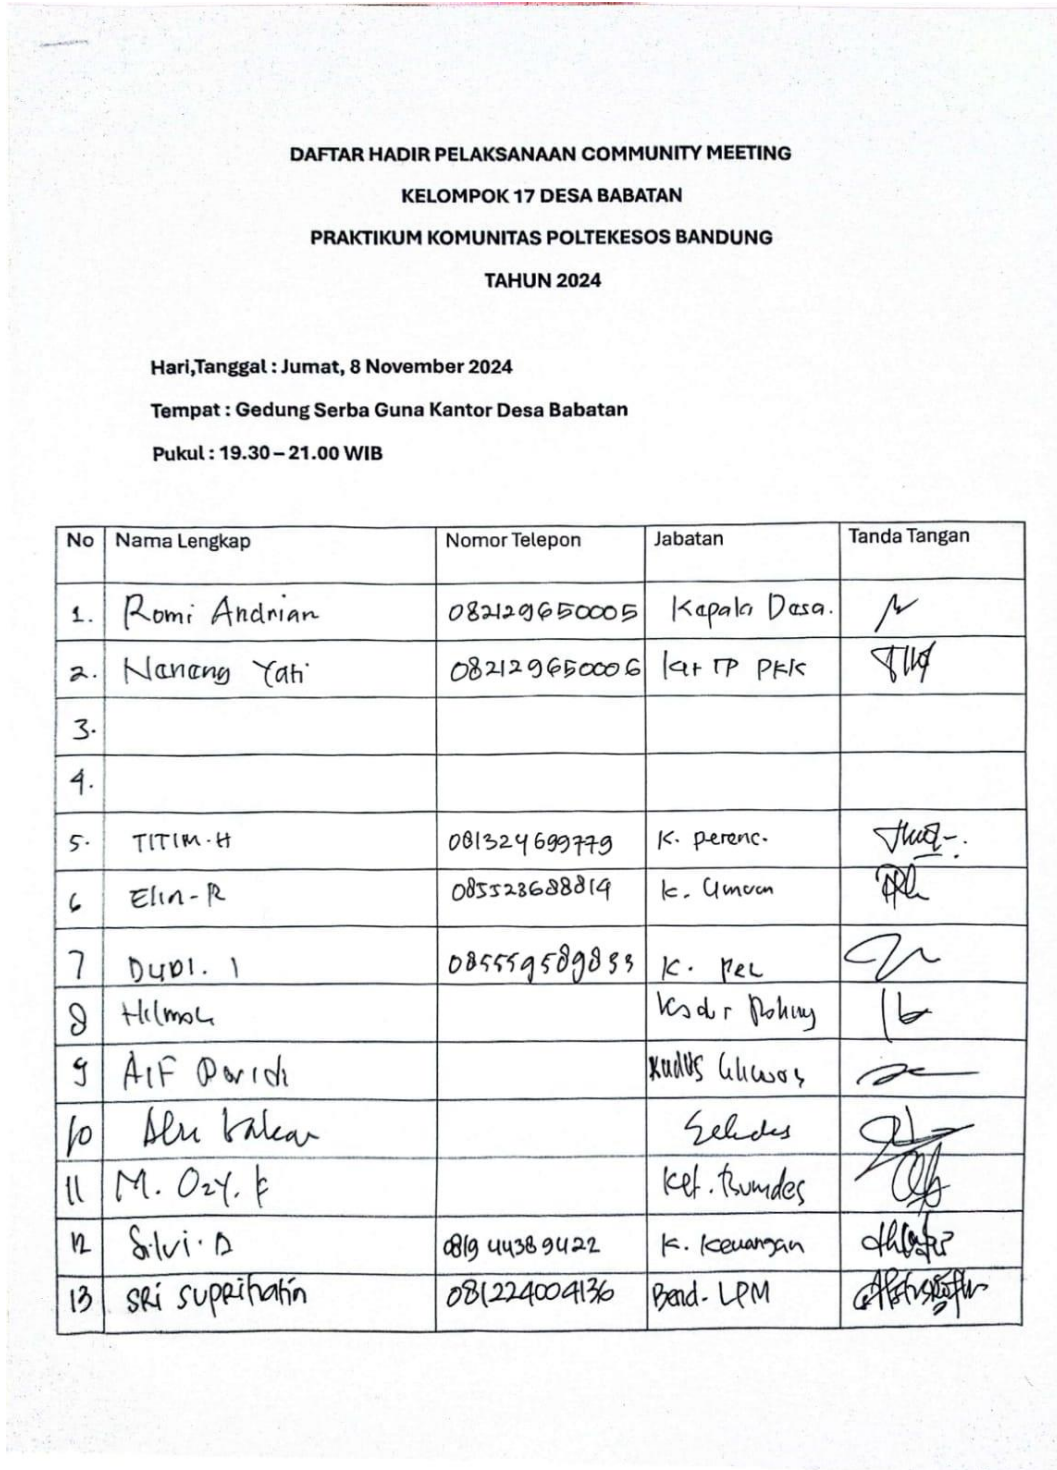 DAFTAR HADIR PELAKSANAAN COMMUNITY MEETING
KELOMPOK 17 DESA BABATAN
PRAKTIKUM KOMUNITAS POLTEKESOS BANDUNG
TAHUN 2024
Hari,Tanggal : Jumat, 8 November 2024
Tempat : Gedung Serba Guna Kantor Desa Babatan
Pukul : 19.30 – 21.00 WIB
No Nama Lengkap Nomor Telepon Jabatan Tanda Tangan
1. Romi Andrian 082129650005 Kepala Desa.
2. Nanang Yati 082129650006 TP PKK
3.
4.
5. TITIM.H 081324699779 K. perenc.
6 Elin-R 085523688814 k. Umum
7 DUDI. I 085559589833 K.
8
9 AIF
10
11 M. Ozy. F Ket. Bumdes
12 Silvi.D 0819 44389422 K. Keuangan
13 SRi supRihatin 081224004136 Bend- LPM